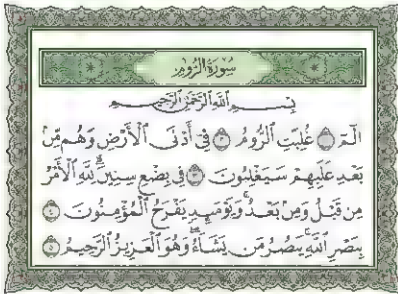 سُورَةُ الرُّومِ
بِسْمِ اللَّهِ الرَّحْمَٰنِ الرَّحِيمِ
الٓمٓ ۝١ غُلِبَتِ ٱلرُّومُ ۝٢ فِىٓ أَدْنَى ٱلْأَرْضِ وَهُم مِّنۢ
بَعْدِ غَلَبِهِمْ سَيَغْلِبُونَ ۝٣ فِى بِضْعِ سِنِينَ ۗ لِلَّهِ ٱلْأَمْرُ
مِن قَبْلُ وَمِنۢ بَعْدُ ۚ وَيَوْمَئِذٍ يَفْرَحُ ٱلْمُؤْمِنُونَ ۝٤
بِنَصْرِ ٱللَّهِ ۚ يَنصُرُ مَن يَشَآءُ ۖ وَهُوَ ٱلْعَزِيزُ ٱلرَّحِيمُ ۝٥